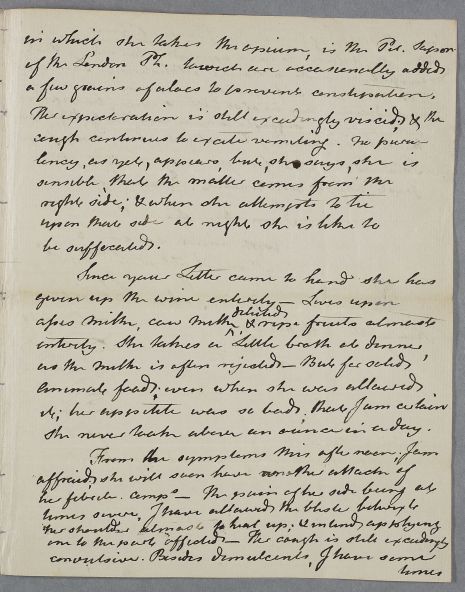 in which she takes the opium, is the Pil. Sapon
of the London Ph. to which are occasionally added
a few grains of aloes to prevent constipation.
The expectoration is still exceedingly viscid, & the
cough continues to excite vomiting. No puru-
lency, as yet, appears, but, she says, she is
sensible that the matter comes from the
right side; & when she attempts to lie
upon that side at night she is like to
be suffocated.
Since your Letter came to hand she has
given up the wine entirely — Lives upon
asses milk, cow milk diluted, & ripe fruits almost
entirely. She takes a little broth at dinner,
as the milk is often rejected — But for solid
animal food, even when she was allowed
it; her appetite was so bad, that I am certain
she never took above an ounce in a day.
From the symptoms this afternoon, I am
affraid, she will soon have another attack of
her febrile comps — The pain of the side being at
times severe, I have allowed the blister betwixt
the shoulders almost to heal up; & intend applying
one to the part affected — The cough is still exceedingly
convulsive. Besides demulcents, I have some
times